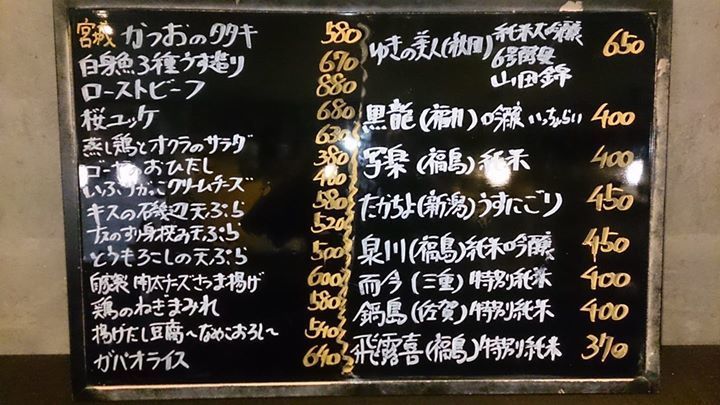 宮城 かつおのタタキ 580
白身魚3種うす造り 670
ローストビーフ 880
桜ユッケ 680
蒸し鶏とオクラのサラダ 630
ゴーヤのおひたし 380
いぶりがっこクリームチーズ 400
キスの磯辺天ぷら 580
ナスのすり身挟み天ぷら 520
とうもろこしの天ぷら 500
自家製 明太チーズさつま揚げ 600
鶏のねぎまみれ 580
揚げだし豆腐〜なめこおろし〜 540
ガパオライス 640
ゆきの美人(秋田) 純米大吟醸 6号酵母 山田錦 650
黒龍(福井)吟醸 いっちょらい 400
写楽(福島)純米 400
たかちよ(新潟)うすにごり 450
泉川(福島)純米吟醸 450
而今(三重)特別純米 400
鍋島(佐賀)特別純米 400
飛露喜(福島)特別純米 370